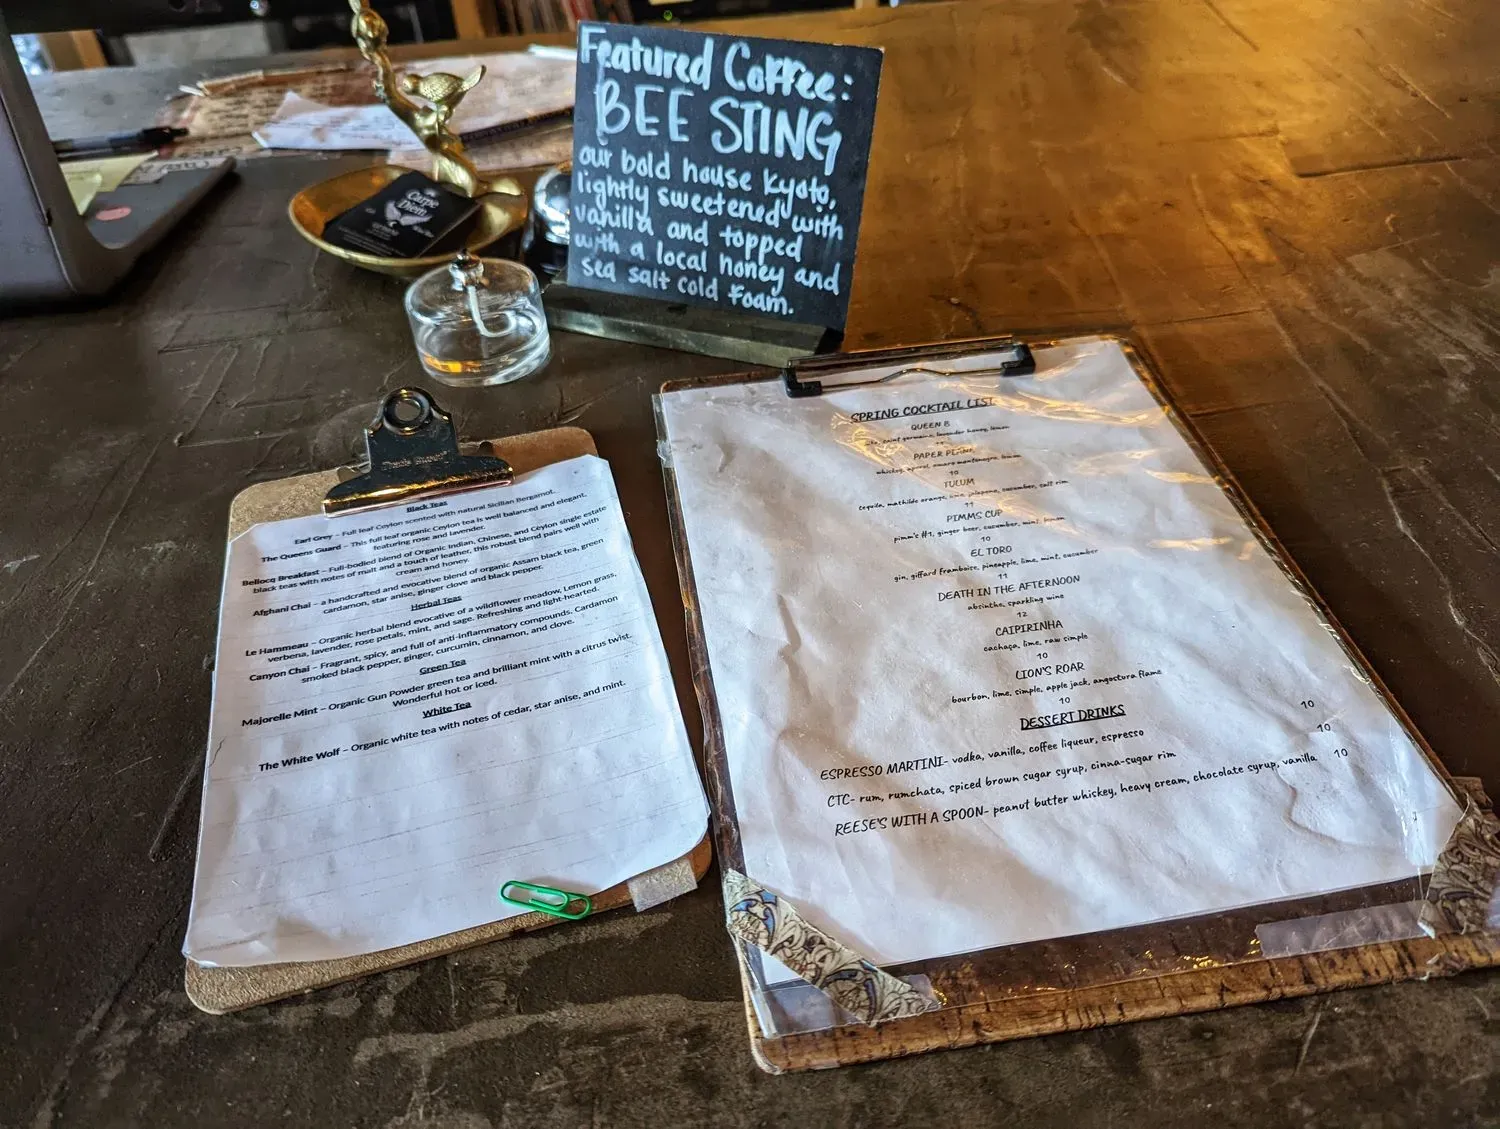 Featured Coffee:
BEE STING
our bold house Kyoto,
lightly sweetened with
vanilla and topped
with a local honey and
sea salt cold foam.
Carpe
Diem
Black Teas
Earl Grey – Full leaf Ceylon scented with natural Sicilian Bergamot.
The Queens Guard – This full leaf organic Ceylon tea is well balanced and elegant,
featuring rose and lavender.
Bellocq Breakfast – Full-bodied blend of Organic Indian, Chinese, and Ceylon single estate
black teas with notes of malt and a touch of leather, this robust blend pairs well with
cream and honey.
Afghani Chai – a handcrafted and evocative blend of organic Assam black tea, green
cardamom, star anise, ginger clove and black pepper.
Herbal Teas
Le Hammeau – Organic herbal blend evocative of a wildflower meadow, Lemon grass,
verbena, lavender, rose petals, mint, and sage. Refreshing and light-hearted.
Canyon Chai – Fragrant, spicy, and full of anti-inflammatory compounds. Cardamon
smoked black pepper, ginger, curcumin, cinnamon, and clove.
Green Tea
Majorelle Mint – Organic Gun Powder green tea and brilliant mint with a citrus twist.
Wonderful hot or iced.
White Tea
The White Wolf – Organic white tea with notes of cedar, star anise, and mint.
SPRING COCKTAIL LIST
QUEEN B
saint germaine, lavender honey, lemon
PAPER PLANE
whiskey, aperol, amaro montenegro, lemon
10
TULUM
tequila, mathilde orange, lime, jalapeno, cucumber, salt rim
11
PIMMS CUP
pimm's #1, ginger beer, cucumber, mint, lemon
10
EL TORO
gin, giffard framboise, pineapple, lime, mint, cucumber
11
DEATH IN THE AFTERNOON
absinthe, sparkling wine
12
CAIPIRINHA
cachaça, lime, raw simple
10
LION'S ROAR
bourbon, lime, simple, apple jack, angostura flame
10
DESSERT DRINKS
ESPRESSO MARTINI- vodka, vanilla, coffee liqueur, espresso 10
CTC- rum, rumchata, spiced brown sugar syrup, cinna-sugar rim 10
REESE'S WITH A SPOON- peanut butter whiskey, heavy cream, chocolate syrup, vanilla 10